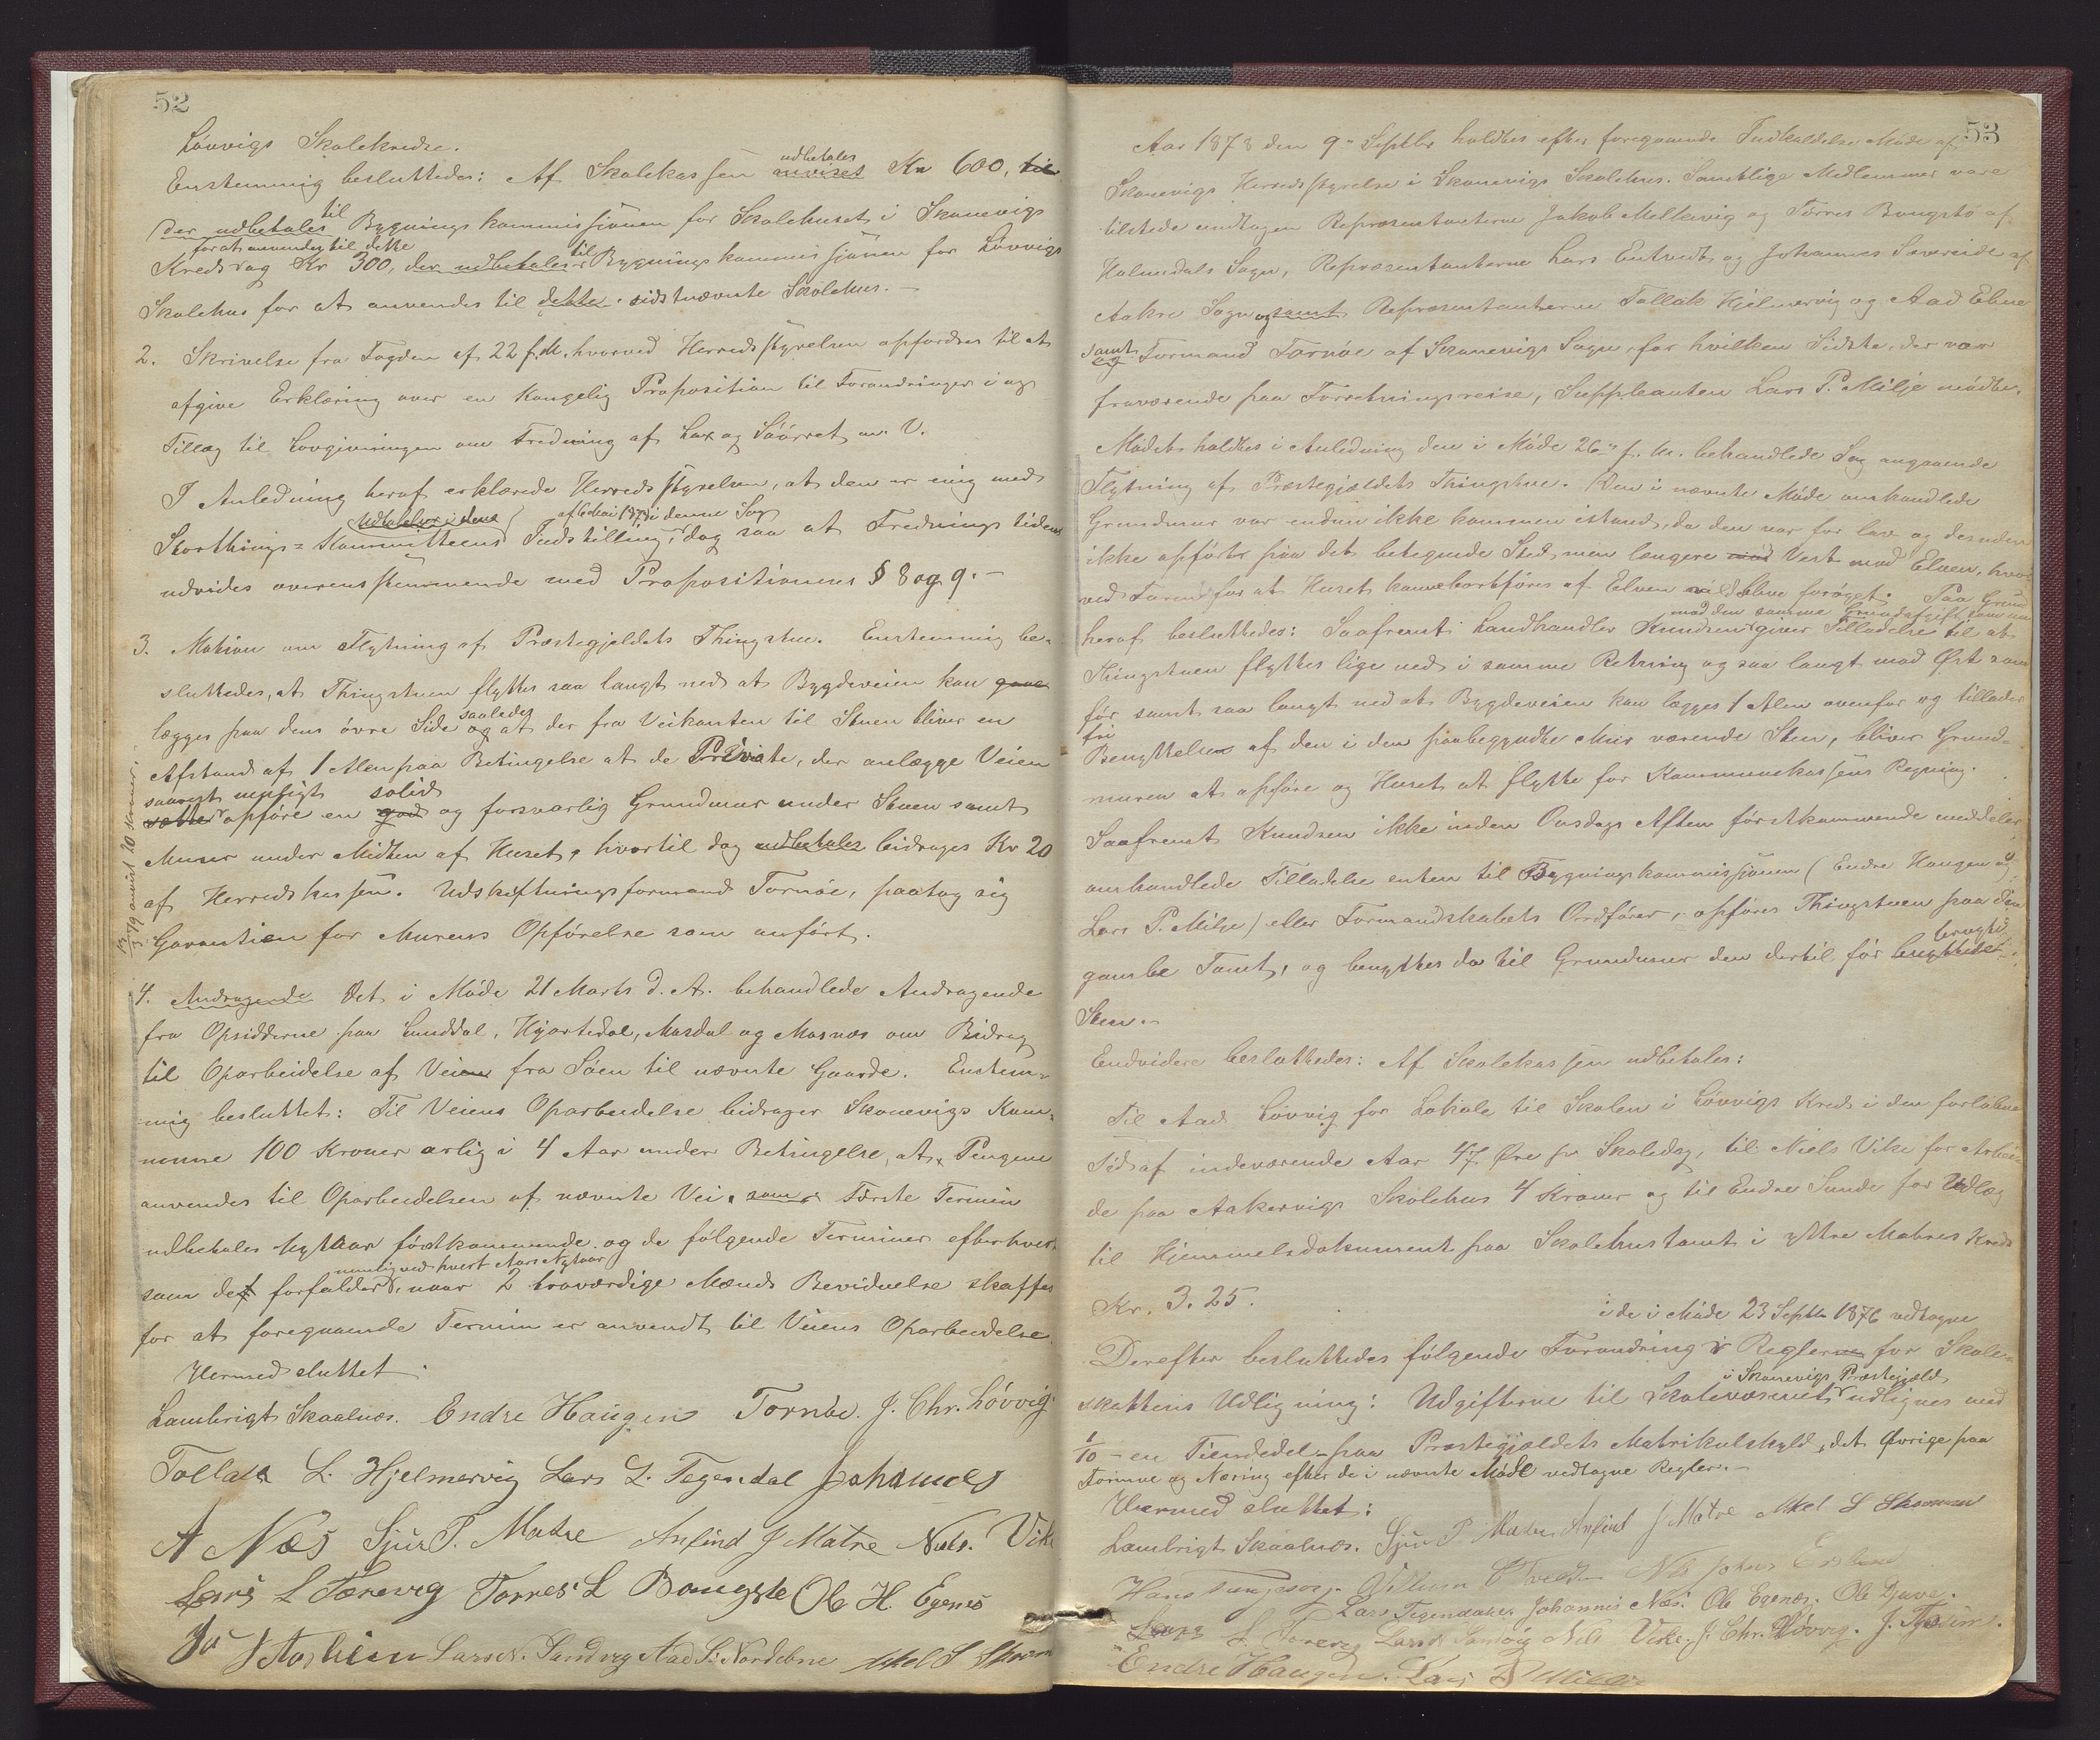 52
Lövvigs Skolekreds.
Enstemmig besluttedes: Af Skolekassen anvises udbetales Kr 600, til
der udbetales til Bygningskommissjonen for Skolehuset i Skonevigs
for at anvendes til dette
Kreds og Kr 300, der udbetales til Bygningskommissjonen for Lövvigs
Skolehus for at anvendes til dette sidstnævnte Skolehus.—
2. Skrivelse fra Fogden af 22 f. M. hvorved Herredsstyrelsen opfordres til at
afgive Erklæring over en Kongelig Proposition til Forandringer i og
Tillæg til Lovgivningen om Fredning af Lax og Söörret m. V.
I Anledning heraf erklærede Herredsstyrelsen, at den er enig med
Storthings-Kommitteens Indstilling i denne Sag, dog saa at Fredningstiden
udvides overensstemmende med Propositionens § 8 og 9.—
3. Motion om Flytning af Præstegjeldets Thingstue. Enstemmig be-
sluttedes, at Thingstuen flyttes saa langt ned at Bygdeveien kan gaae
lægges paa dens övre Side og saaledes at der fra Veikanten til Stuen bliver en
Afstand af 1 Alen paa Betingelse at de Private, der anlægge Veien
saavidt muligt solid
opföre en god og forsvarlig Grundmur under Stuen samt
Murer under Midten af Huset, hvortil dog udbetales bidrages Kr 20
af Herredskassen. Udskiftningsformand Tornöe, paatog sig
Garantien for Murens Opförelse som anfört.
13/3 79 anvist 20 Kroner.
4. Andragende Det i Möde 21 Marts d. A. behandlede Andragende
fra Opsidderne paa Lunddal, Hjortedal, Mosdal og Mosnæs om Bidrag
til Oparbeidelse af Veien fra Söen til nævnte Gaarde. Enstem-
mig besluttet: Til Veiens Oparbeidelse bidrager Skonevigs Kom-
mune 100 Kroner aarlig i 4 Aar under Betingelse, at Pengene
anvendes til Oparbeidelsen af nævnte Vei, som Første Termin
udbetales Nytaar förstkommende og de fölgende Terminer efterhvert
nemlig ved hvert Aars Nytaar
som det forfalder, naar 2 troværdige Mænds Bevidnelse skaffes
for at foregaaende Termin er anvendt til Veiens Oparbeidelse.
Hermed sluttet.
Lambrigt Skaalnæs. Endre Haugen Tornöe. J. Chr. Lövvig.
Tollak L. Hjelmervig Lars L. Tegendal Johannes
A Næs Sjur P. Matre Anfind J Matre Nils. Vike
Lars L Torevig Torres L Bongste Ole H. Egenes
Lars N. Sandvig Aad S. Nordebne Mikel S
53
Aar 1878 den 9de Septbr holdtes efter foregaaende Indkaldelse Möde af
Skonevigs Herredsstyrelse i Skonevigs Skolehus. Samtlige Medlemmer vare
tilstede undtagen Repræsentanterne Jakob Melkevig og Torres Bongstö af
Holmedals Sogn, Repræsentanterne Lars Entvedt og Johannes Sævereide af
Aakre Sogn og samt Repræsentanterne Tollak Hjelmervig og Aad Ebne
samt og Formand Tornöe af Skonevigs Sogn, for hvilken Sidste, der var
fraværende paa Forretningsreise, Suppleanten Lars P. Milje mödte.
Mödet holdtes i Anledning den i Möde 26de f. M. behandlede Sag angaaende
Flytning af Præstegjældets Thingstue. Den i nævnte Möde omhandlede
Grundmur var endnu ikke kommen istand, da den var for lav og desuden
ikke opfört paa det betegnede Sted, men længere mod Vest mod Elven, hvor-
ved Faren for at Huset kan bortföres af Elven vilde blive forøget. Paa Grund
mod den samme Grundafgift som nu
heraf besluttedes: Saafremt Landhandler Knudsen giver Tilladelse til at
Thingstuen flyttes lige ned i samme Retning og saa langt mod Øst som
för samt saa langt ned at Bygdeveien kan lægges 1 Alen ovenfor og tillader
fri
Benyttelse af den i den paabegyndte Mur værende Sten, bliver Grund-
muren at opföre og Huset at flytte for Kommunekassens Regning.
Saafremt Knudsen ikke inden Onsdags Aften förstkommende meddeler
omhandlede Tilladelse enten til Bygningskommissjonen (Endre Haugen og
Lars P. Milje) eller Formandskabets Ordförer, opföres Thingstuen paa sin
gamle Tomt, og benyttes da til Grundmur den dertil för benyttede brugte
Sten.—
Endvidere besluttedes: Af Skolekassen udbetales:
Til Aad Lövvig for Lokale til Skolen i Lövvigs Kreds i den forløbne
Tid af indeværende Aar 47 Øre pr Skoledag, til Niels Vike for Arbei-
de paa Aakervigs Skolehus 4 Kroner og til Endre Sunde for Udlæg
til Hjemmelsdokument paa Skolehustomt i ytre Matres Kreds
Kr. 3.25.
i de i Möde 23 Septbr 1876 vedtagne
Derefter besluttedes fölgende Forandring i Reglerne for Skole-
i Skonevigs Præstegjæld
skattens Udligning: Udgifterne til Skolevæsenet udlignes med
1/10 — en Tiendedel — paa Præstegjældets Matrikulskyld, det Øvrige paa
Formue og Næring efter de i nævnte Möde vedtagne Regler.—
Hermed sluttet:
Lambrigt Skaalnæs. Sjur P. Matre Anfind J Matre Mikel S
Lars Tegendal. Johannes Næs. Ole Egenæs. Ole Djuve.
L. Torevig Lars N Sandvig Nils Vike. J. Chr. Lövvig.
Endre Haugen. Lars P Milje